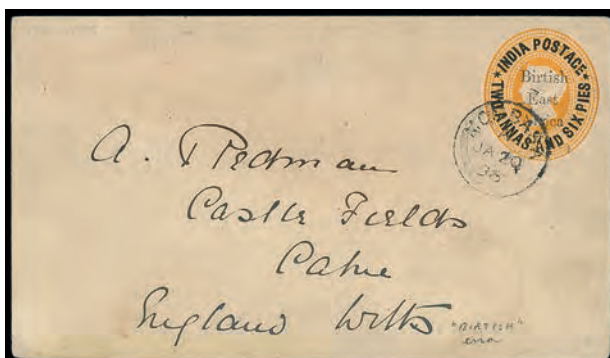 ★ INDIA POSTAGE ★
TWO ANNAS AND SIX PIES
Birtish
East
JA 20
A. Redman
Castle Fields
Calne
England Wilts
"BIRTISH"
error